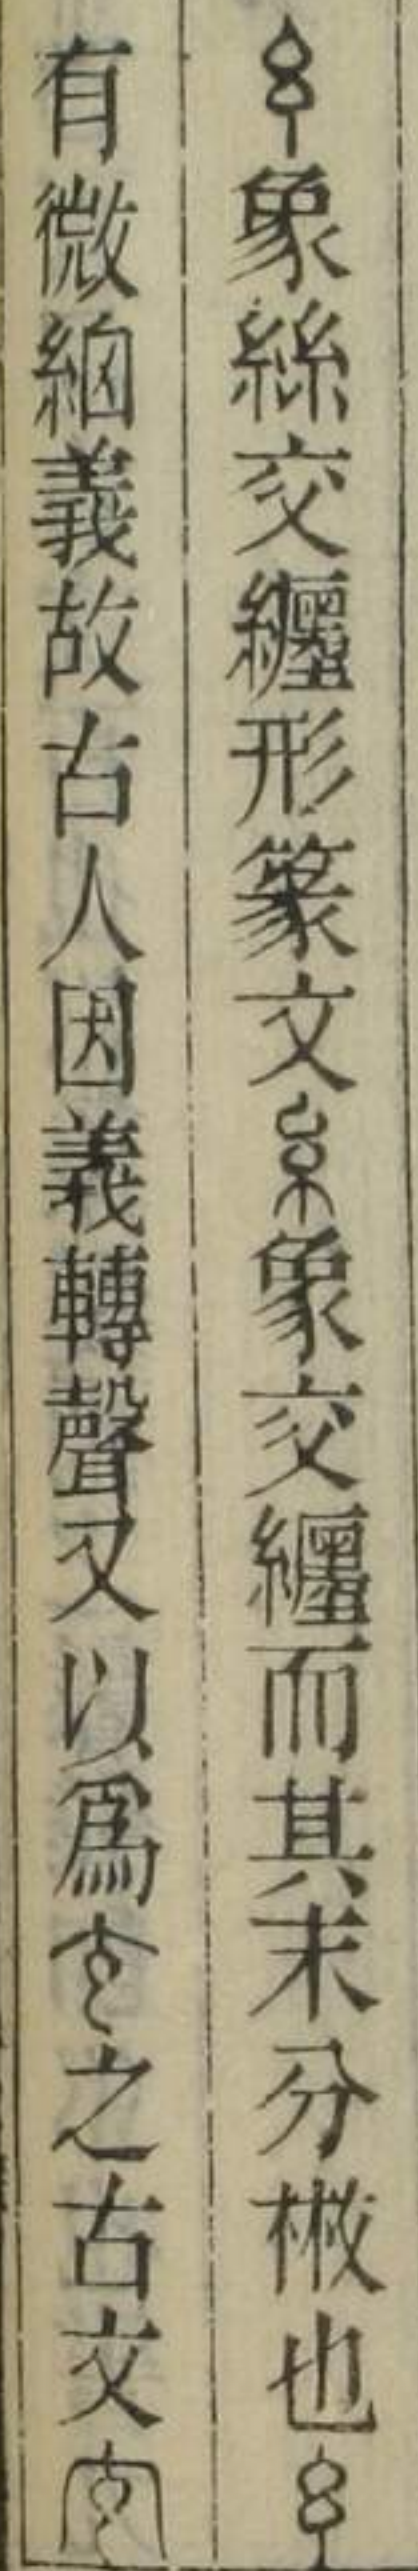 𢆯象絲交纒形篆文糸象交纒而其末分㪔也𢆯
有微細義故古人因義轉聲又以爲玄之古文